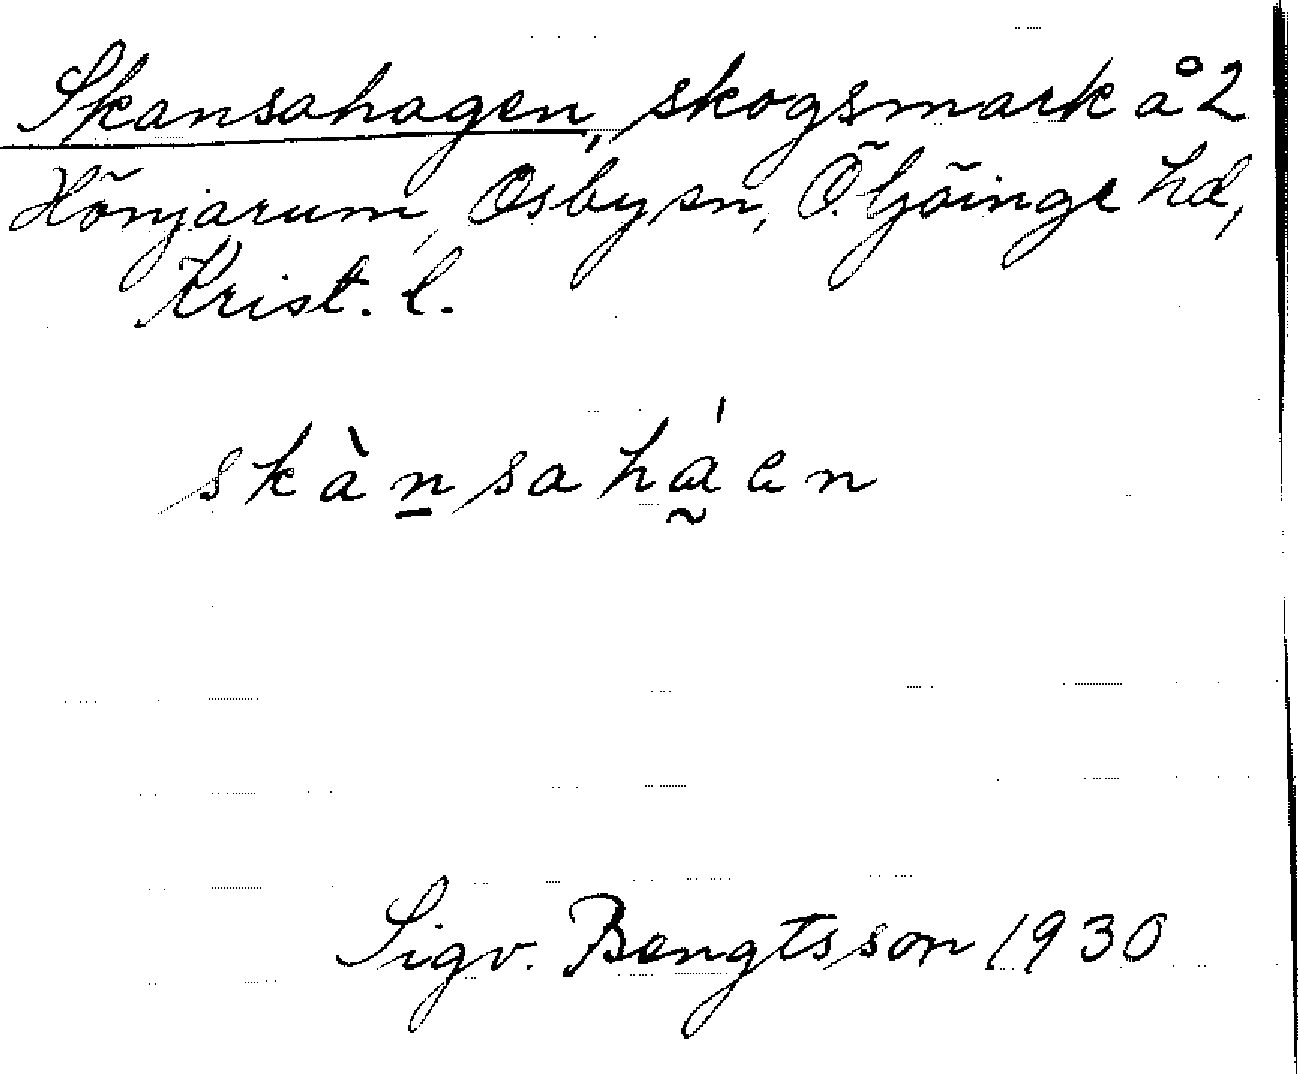 Skansahagen, skogsmark å 2
Hönjarum, Osby sn, Ö. Göinge hd,
Krist. l.
skàn̲sahá̰en
Sigv. Bengtsson 1930